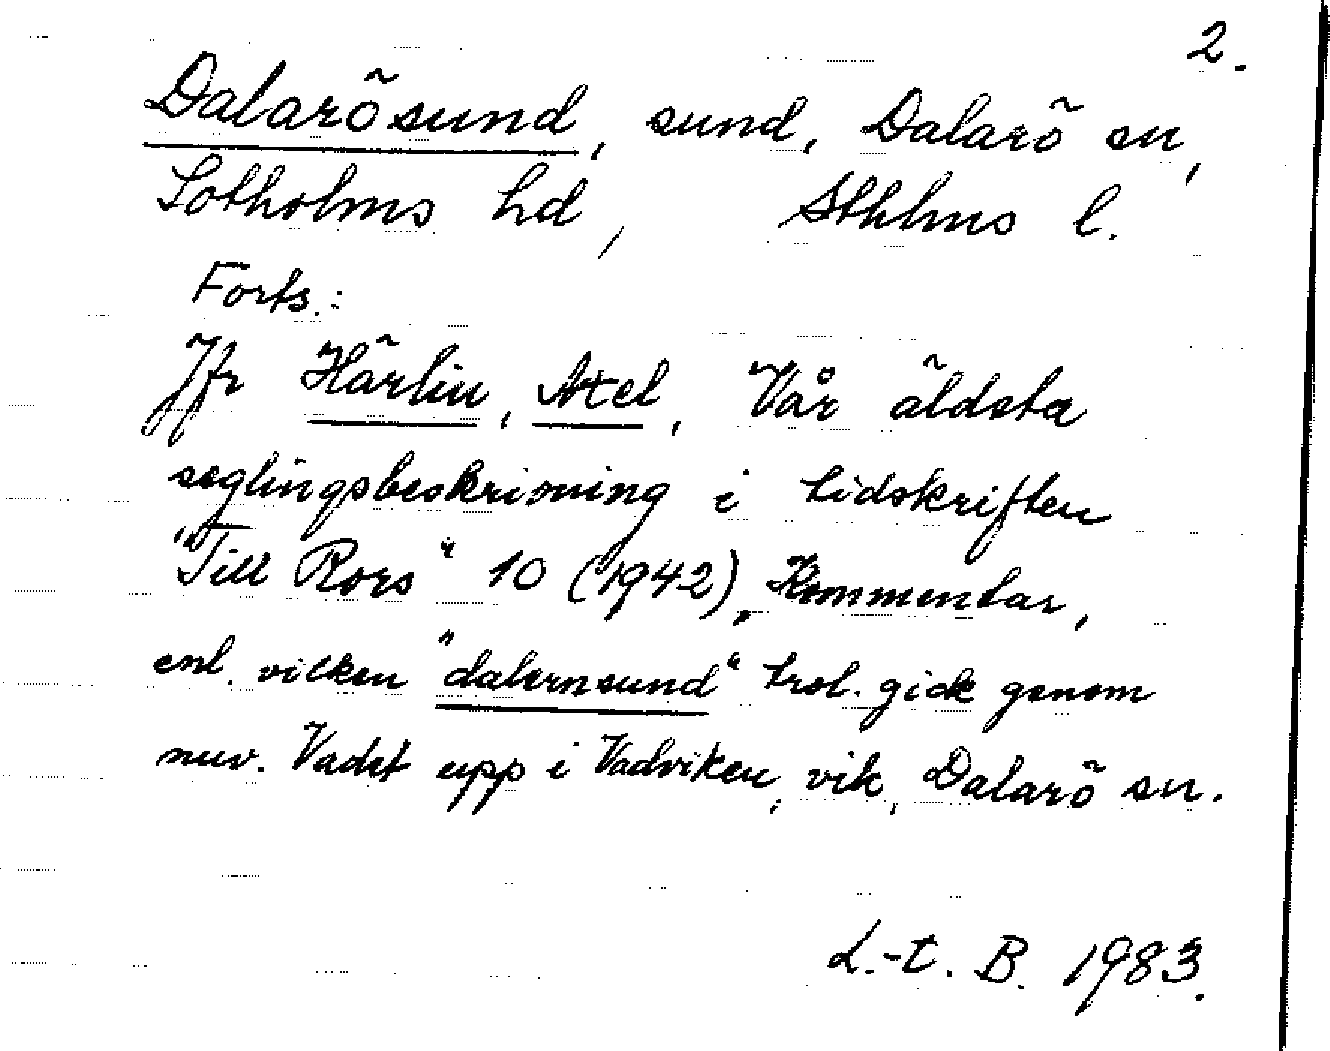 2.
Dalarösund, sund, Dalarö sn,
Sotholms hd, Sthlms l.
Forts.:
Jfr Härlin, Axel, Vår äldsta
seglingsbeskrivning i tidskriften
"Till Rors" 10 (1942), Kommentar,
enl. vilken "dalernsund" trol. gick genom
nuv. Vadet upp i Vadviken, vik, Dalarö sn.
L.-t. B. 1983.